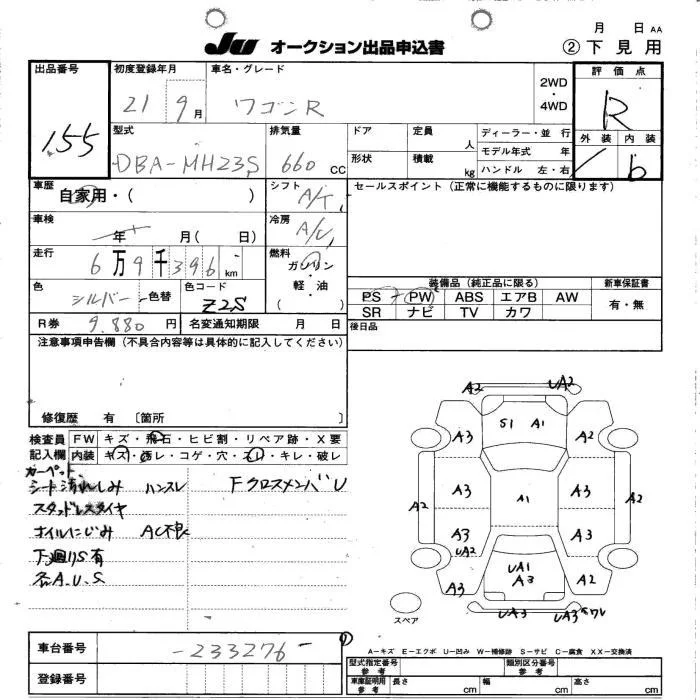 Ju オークション出品申込書
月 日 AA
② 下見用
出品番号 155
初度登録年月 21 9月
車名・グレード ワゴンR
2WD・4WD
評価点 R
外装 内装 b
型式 DBA-MH23S
排気量 660 CC
ドア
定員 人
ディーラー・並行
モデル年式 年
形状
積載 kg
ハンドル 左・右
車歴 自家用・( )
シフト A/T
セールスポイント (正常に機能するものに限ります)
車検 年 月( 日)
冷房 A/C
走行 6万9千396 km
燃料 ガソリン・軽油 ( )
色 シルバー 色替
色コード Z2S
装備品 (純正品に限る)
新車保証書
PS PW ABS エアB AW
有・無
SR ナビ TV カワ
R券 9,880円
名変通知期限 月 日
後日品
注意事項申告欄 (不具合内容等は具体的に記入してください)
修復歴 有 〔箇所 〕
検査員記入欄
FW キズ・飛石・ヒビ割・リペア跡・X要
内装 キズ・汚レ・コゲ・穴・スレ・キレ・破レ
カーペット、
シート汚れしみ ハンスレ FクロスメンバU
スタッドレスタイヤ
オイルにじみ AC不良
下廻りS有
各A.U.S
A2 UA2
S1 A1
A3 A2
A2 A3 A1 A3 A2
A3 UA2 A3
UA1 A3
A3 A2
UA3 UA3
スペア
車台番号 -233276-
A-キズ E-エクボ U-凹み W-補修跡 S-サビ C-腐食 XX-交換済
登録番号
型式指定番号 参考
類別区分番号 参考
車庫証明用 参考 長さ cm 幅 cm 高さ cm